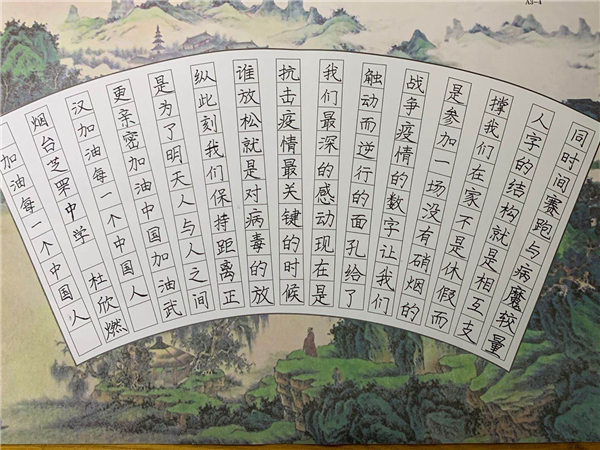 同时间赛跑与病魔较量
人字的结构就是相互支
撑我们在家不是休假而
是参加一场没有硝烟的
战争疫情的数字让我们
触动而逆行的面孔给了
我们最深的感动现在是
抗击疫情最关键的时候
谁放松就是对病毒的放
纵此刻我们保持距离正
是为了明天人与人之间
更亲密加油中国加油武
汉加油每一个中国人
烟台芝罘中学 杜欣燃
加油每一个中国人